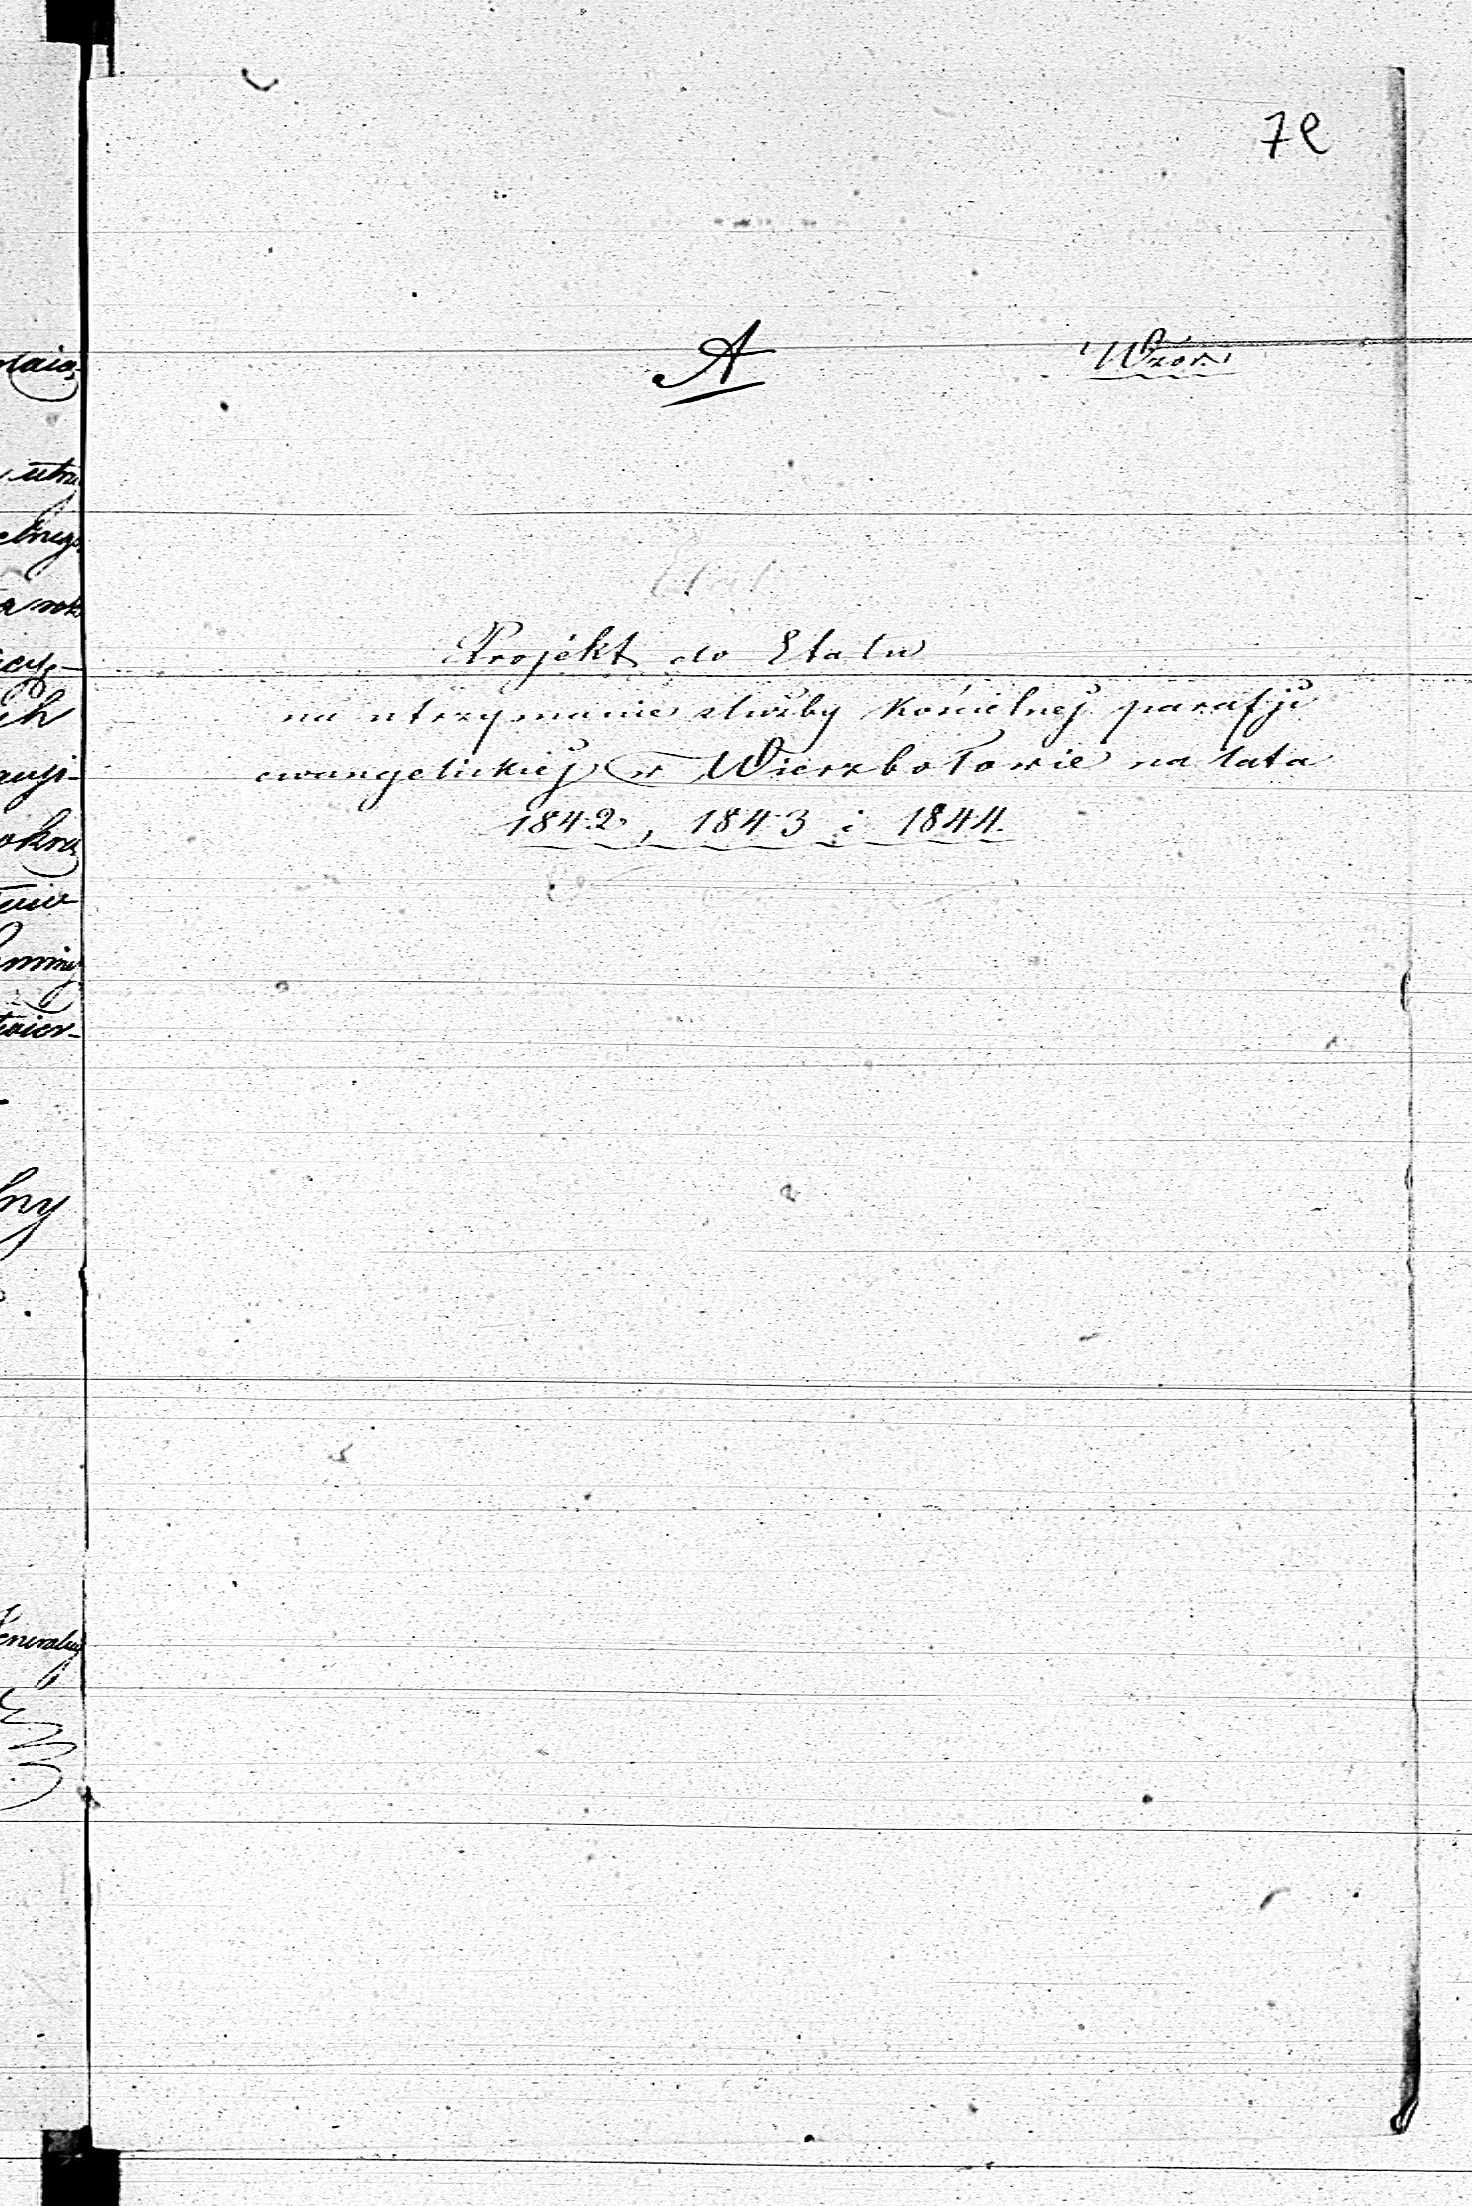 72
A
Wzór.
Projekt do Etatu
na utrzymanie służby kościelnej parafji
ewangelickiej w Wierzbołowie na lata
1842, 1843 i 1844.